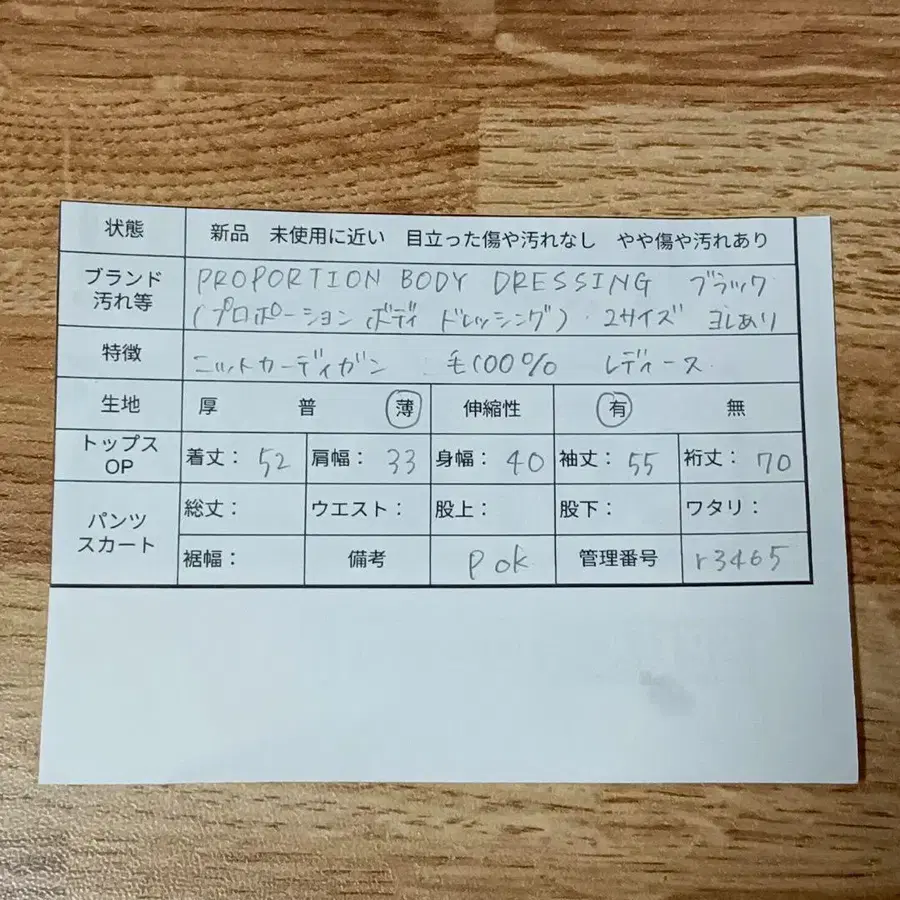 状態 新品 未使用に近い 目立った傷や汚れなし やや傷や汚れあり
ブランド 汚れ等 PROPORTION BODY DRESSING ブラック
(プロポーション ボディ ドレッシング). 2サイズ ヨレあり
特徴 ニットカーディガン 毛100% レディース.
生地 厚 普 薄 伸縮性 有 無
トップス OP 着丈: 52 肩幅: 33 身幅: 40 袖丈: 55 裄丈: 70
パンツ スカート 総丈: ウエスト: 股上: 股下: ワタリ:
裾幅: 備考 Pok 管理番号 r3465